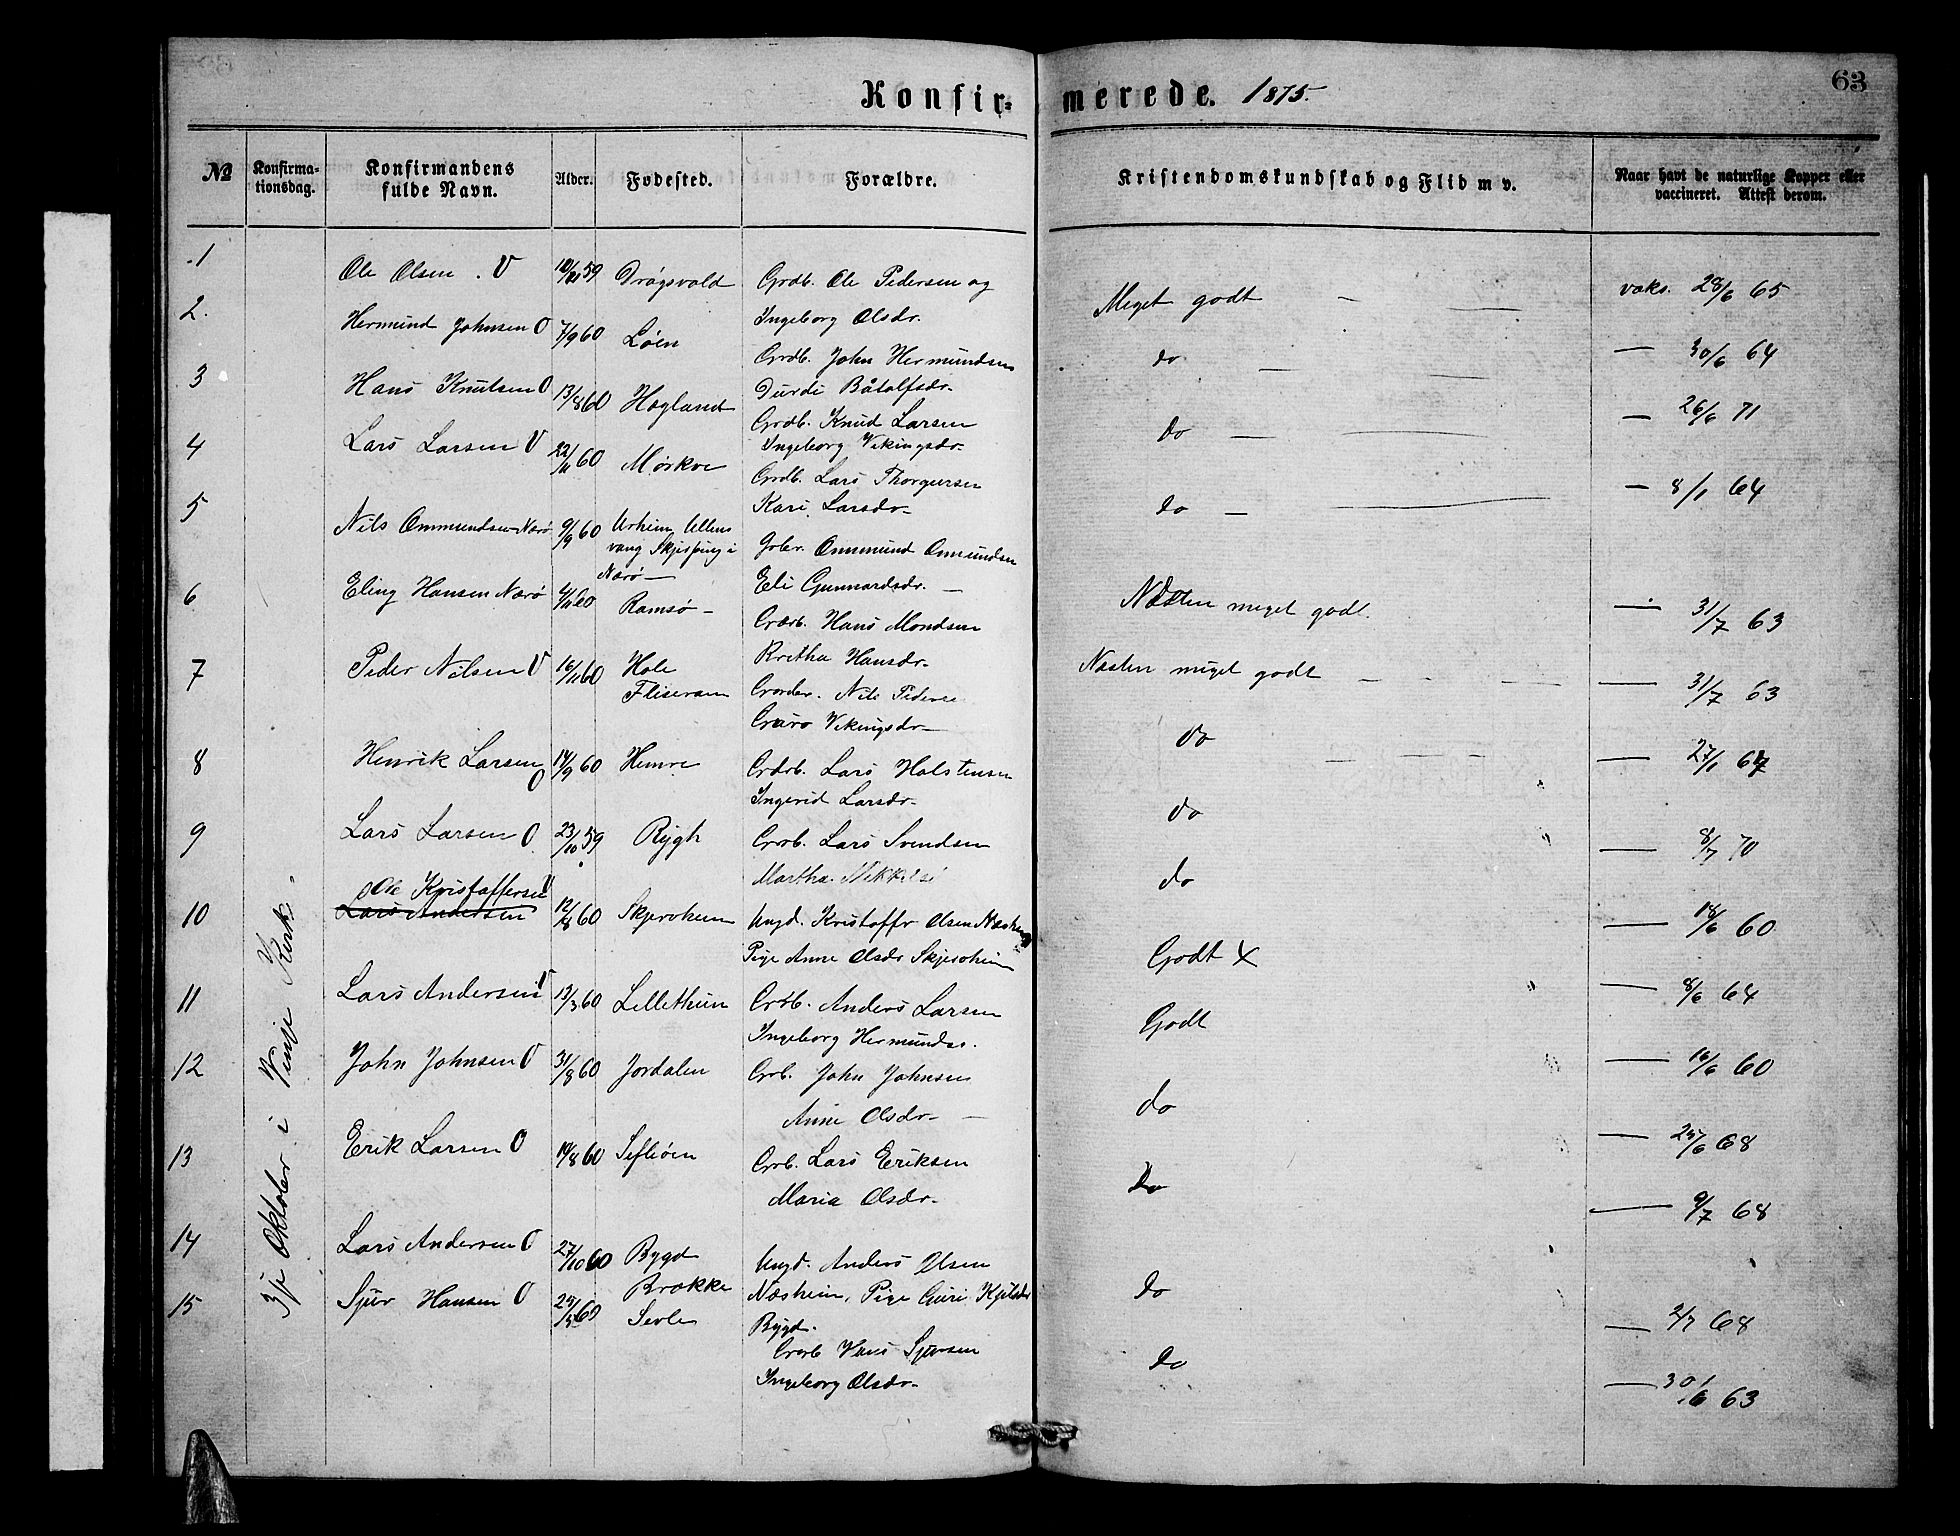 63
Konfirmerede. 1875.
№ Konfirmationsdag. Konfirmandens fulde Navn. Alder. Fødested. Forældre. Kristendomskundskab og Flid m v. Naar havt de naturlige Kopper eller vaccineret. Attest derom.
3die Oktober i Vinje Kirk.
1 Ole Olsen . V 59 Drøgsvold Grdb. Ole Pedersen og Ingeborg Olsdr. Meget godt — — vaks. 28/6 65
2. Hermund Johnsen O 7/9 60 Løen Grdb. John Hermundsen Durdi Båtolfsdr. do — — — 30/6 64
3 Hans Knutsen O 13/8 60 Hægland Grdb. Knud Larsen Ingeborg Vikingsdr. do — — — 26/6 71
4 Lars Larsen V 22/11 60 Mørkve Grdb. Lars Thorgersen Kari Larsdr. do — — — 8/1 64
5 Nils Ommundsen Nærø 9/9 60 Urheim Ullensvang i Nærø — Ommund Ommundsen Eli Gunnardsdr. — Næsten meget godt. — 31/7 63
6 Eling Hansen Nærø 4/11 60 Ramsø — Hans Mondsen Kretha Hansdr. Næsten meget godt — — — 31/7 63
7 Peder Nilsen V 16/11 60 Hole Fliseram Nils Vikingsdr. do — — — 27/1
8 Henrik Larsen O 14/9 60 Himre Grdb. Lars Holstensen Ingerid Larsdr. do " — 8/7 70
9 Lars Larsen O 23/10 59 Rygh Grdb. Lars Svendsen Martha do — 18/6 60
10 Ole Kristoffersen V Lars Andersen 12/8 60 Skjerveheim Ungd. Kristoffer Olsen Pige Anne Olsdr Skjerveheim Godt X " — 8/6 64
11 Lars Andersen V 13/3 60 Lillethun Grdb. Anders Larsen Ingeborg Hermundsd. Godt — 16/6 60
12 John Johnsen O 31/8 60 Jordalen Grdb. John Johnsen Anne Olsdr. — do — 25/6 68
13 Erik Larsen O 19/8 60 Sefleøen Grdb. Lars Eriksen Maria Olsdr. Do — 9/7 68
14 Lars Andersen O 27/10 60 Bygd Brække Ungd. Anders Olsen Næsheim, Pige Guri Kjelsdr Bygd. Do — 2/7 68
15 Sjur Hansen O 25/5 60 Sevle Grdb Hans Sjursen Ingeborg Olsdr. Do — 30/6 63